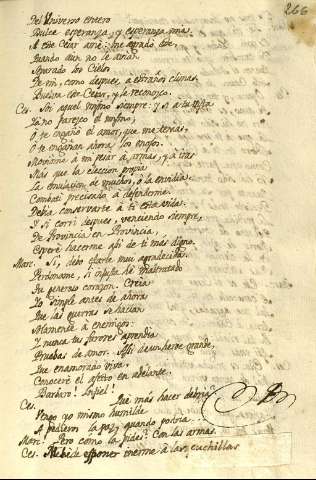 266
Del Universo entero
Dulce esperanza, y esperanza mia.
A este César amé: me agradó este,
Quando aun no le avian
Separado los Cielos
De mi, como despues, a estraños climas.
Buelva ese Cesar, y le reconozco.
Ces. Soi aquel mismo siempre: y si a tu vista
Ya no parezco el mismo,
O te engañó el amor, que me tenias,
O te engañan ahora los enojos.
Movieronme a mi pesar a armas, y a iras
Más que la eleccion propia
La emulacion de muchos, ó la envidia.
Combatí precisado a defenderme.
Debia conservarte a ti esta vida.
Y si corri despues, venciendo siempre,
De Provincia en Provincia,
Creré hacerme asi de ti más digno.
Marc. Si, debo estarte mui agradecida.
Perdoname, si injusta hé maltratado
Un generoso corazon. Creia
Yo simple antes de ahora
Que las guerras se hacian
Solamente a enemigos:
Y nunca tus furores aprendia
Pruebas de amor. Assi de un heroe grande,
Que enamorado viva,
Conoceré el afecto en adelante.
Barbaro! Infiel!
Ces. Qué más hacer debria?
Vengo yo mismo humilde
A pediros la paz, quando podria.
Marc. Pero como la pides? Con las armas.
Ces. Me hé de esponer inerme a las cuchillas